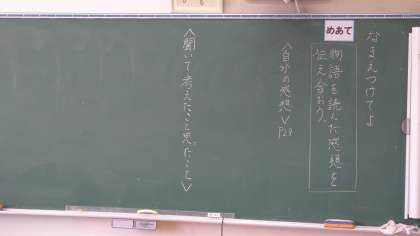 なまえつけてよ
めあて
物語を読んだ感想を
伝え合おう。
＜自分の感想＞P29
＜聞いて考えたこと思ったこと＞